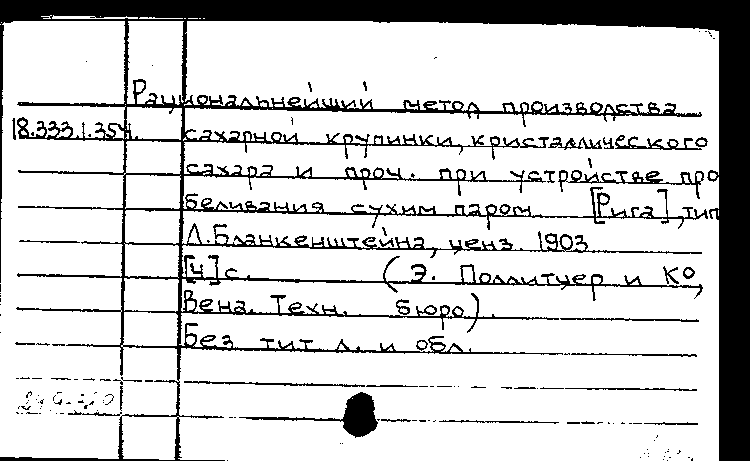 Рациональнейший метод производства
18.333.1.354. сахарной крупинки, кристаллического
сахара и проч. при устройстве про
беливания сухим паром [Рига], тип
Л. Бланкенштейна, ценз. 1903
[4] с. (Э. Поллитцер и К⁰,
Вена. Техн. бюро).
Без тит л. и обл.